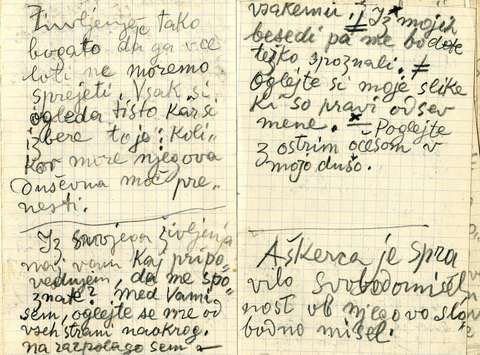 Življenje je tako
bogato da ga v ce
loti ne moremo
sprejeti. Vsak si
ogleda tisto kar si
izbere to je: Koli-
kor more njegova
Duševna moč pre-
nesti.
Iz svojega življenja
naj vam kaj pripo-
vedujem, da me spo-
znate? med Vami
sem, oglejte se me od
vseh strani naokrog.
na razpolago sem –
vsakemu! Iz mojih
besedi pa me bodete
težko spoznali. ≠
Oglejte si moje slike
Ki so pravi odsev
mene. – Poglejte
z ostrim očesom v
mojo dušo.
Aškerca je spra
vilo svobodomisel
nost ob njegovo slo
bodno misel.